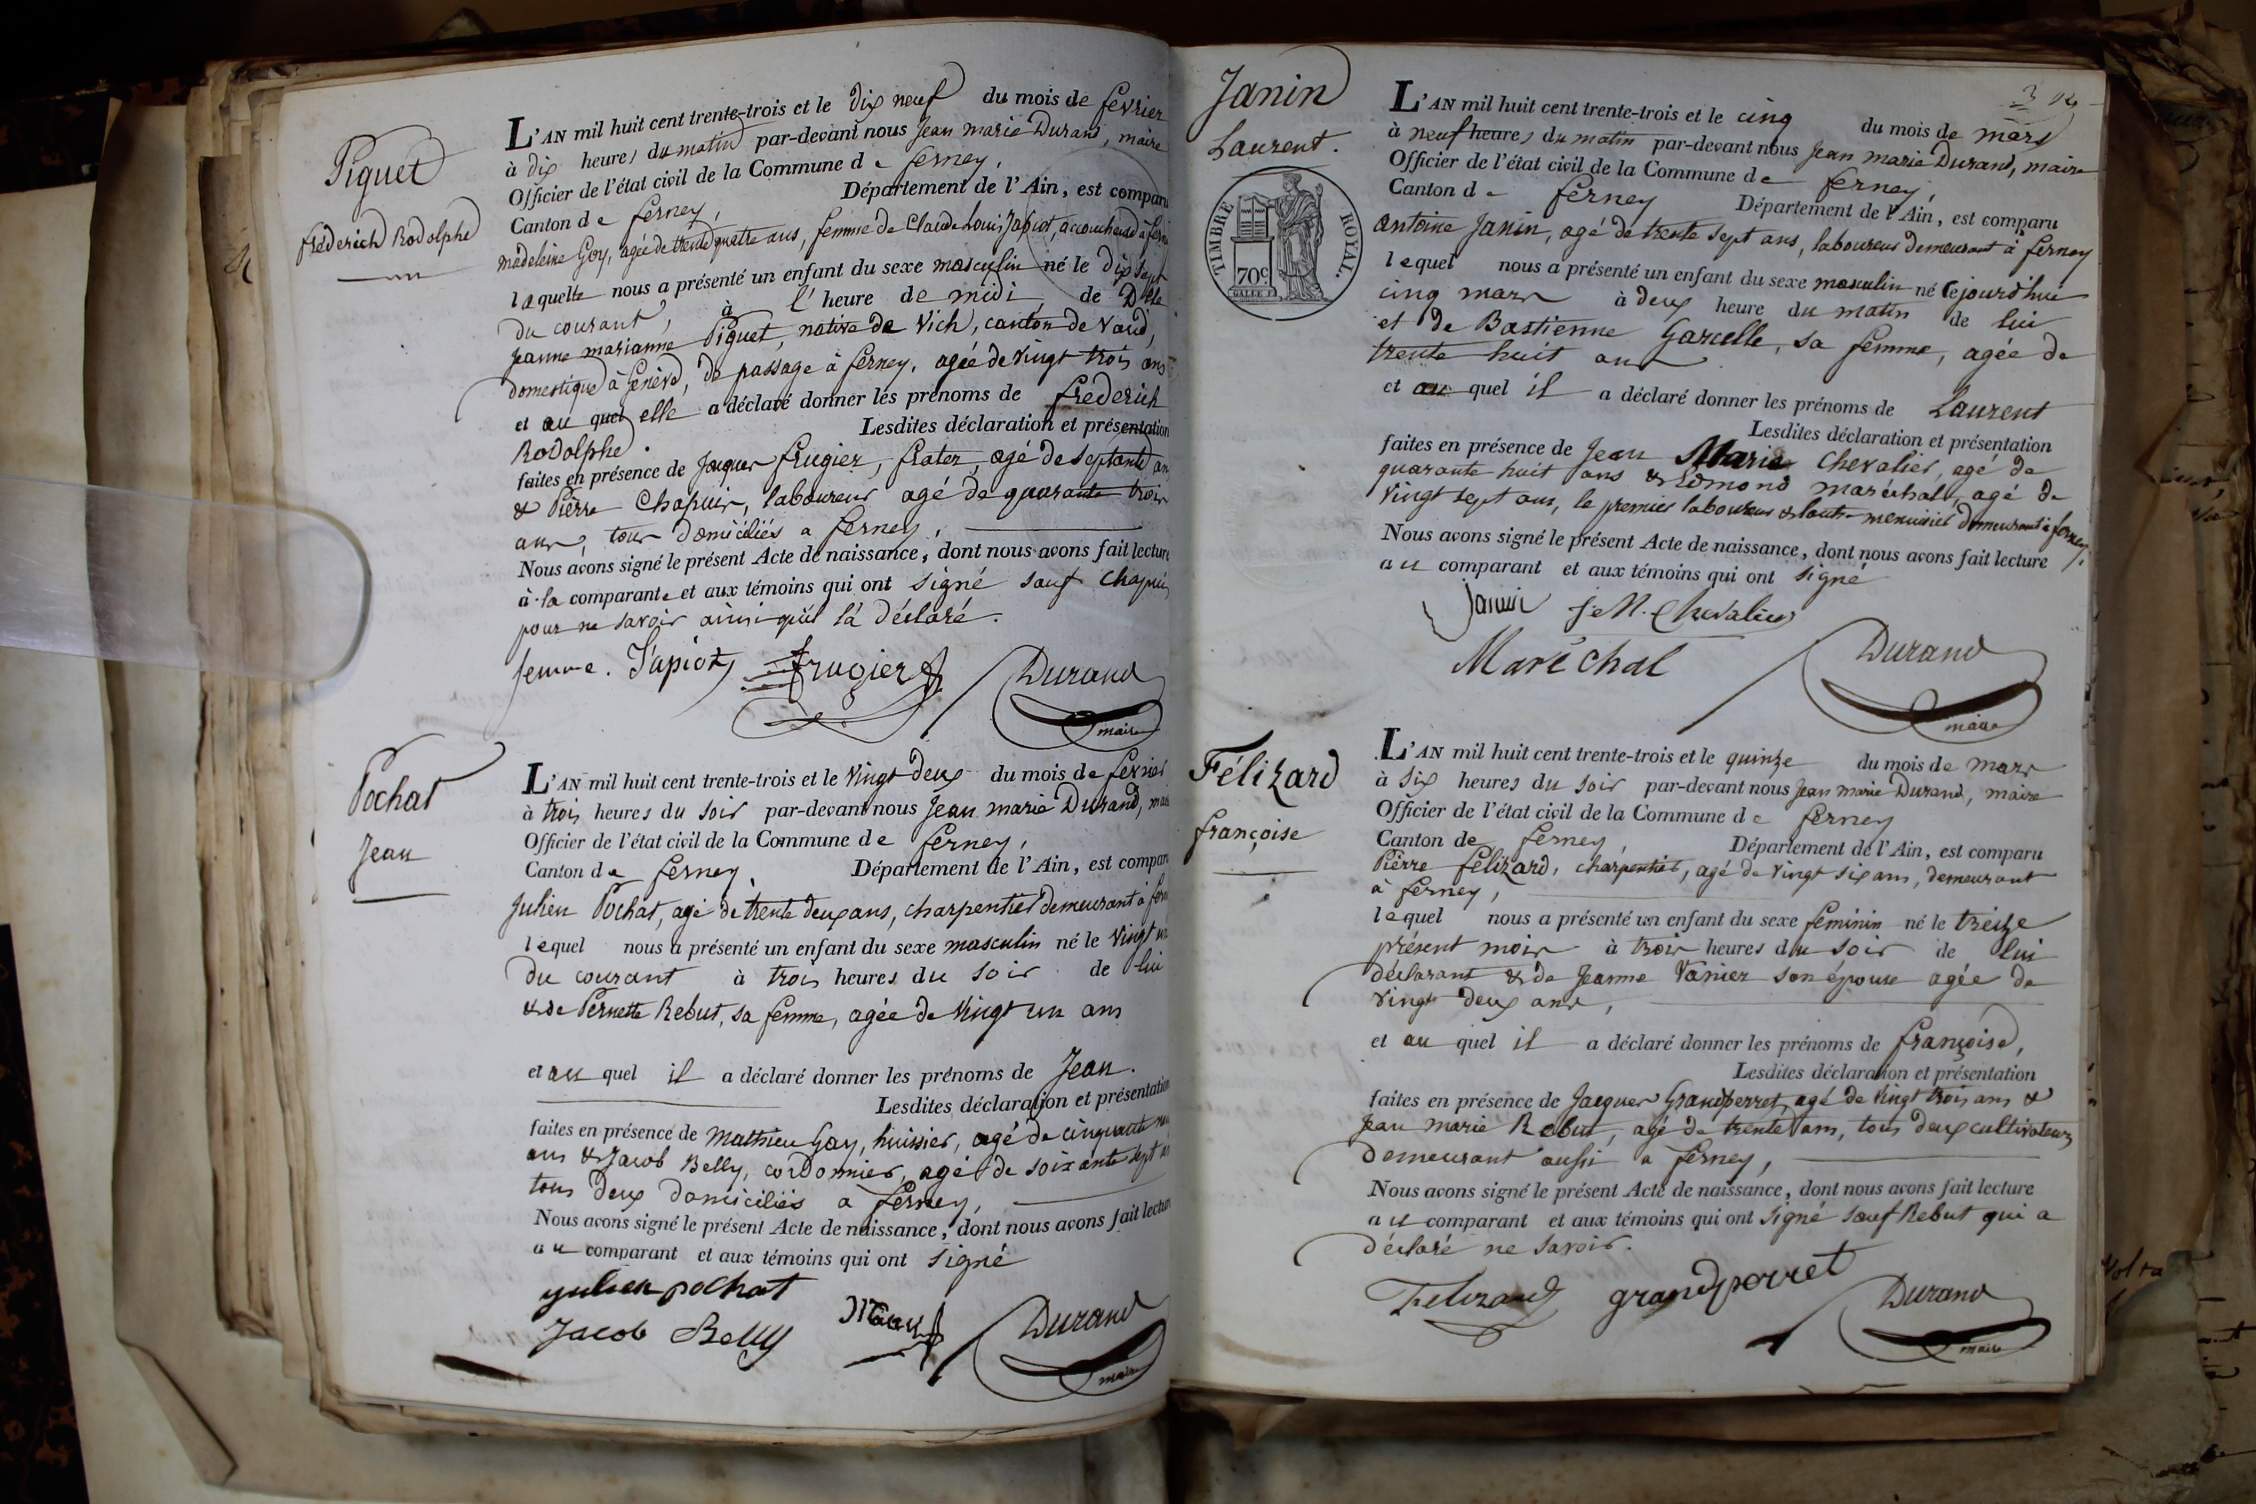 Piguet
fréderich Rodolphe
L'AN mil huit cent trente-trois et le dix neuf du mois de février
à dix heures du matin par-devant nous Jean marie Durand, maire
Officier de l'état civil de la Commune de ferney,
Canton de ferney, Département de l'Ain, est comparu
madeleine Goy, agée de trente quatre ans, femme de Claude Louis Japiot, accoucheuse à
laquelle nous a présenté un enfant du sexe masculin né le dix sept
du courant, à l'heure de midi, de D
Jeanne marianne Piguet, native de Vich, canton de Vaud,
domestique à Genève, de passage à ferney, agée de vingt trois ans
et au quel elle a déclaré donner les prénoms de frederich
Rodolphe. Lesdites déclaration et présentation
faites en présence de Jacques frugier, frater, agé de septante ans
& Pierre Chapuis, laboureur agé de quarante trois
ans, tous domiciliés a ferney,
Nous avons signé le présent Acte de naissance, dont nous avons fait lecture
à la comparante et aux témoins qui ont signé sauf chapuis
pour ne savoir ainsi qu'il l'a déclaré.
femme. Japiot frugier Durand
maire
Pochat
Jean
L'AN mil huit cent trente-trois et le vingt deux du mois de fevrier
à trois heures du soir par-devant nous Jean marie Durand, mai
Officier de l'état civil de la Commune de ferney,
Canton de ferney, Département de l'Ain, est comparu
Julien Pochat, agé de trente deux ans, charpentier demeurant à fern
lequel nous a présenté un enfant du sexe masculin né le vingt un
du courant à trois heures du soir de lui
& de Pernette Rebut, sa femme, agée de vingt un ans
et au quel il a déclaré donner les prénoms de Jean.
Lesdites déclaration et présentation
faites en présence de mathieu Goy, huissier, agé de cinquante
ans & Jacob Belly, cordonnier, agé de soixante sept
tous deux domiciliés a ferney,
Nous avons signé le présent Acte de naissance, dont nous avons fait lecture
au comparant et aux témoins qui ont signé
julien pochat
Jacob Belly Durand
maire
Janin
Laurent.
TIMBRE ROYAL.
70c.
L'AN mil huit cent trente-trois et le cinq du mois de mars
à neuf heures du matin par-devant nous Jean marie Durand, maire
Officier de l'état civil de la Commune de ferney,
Canton de ferney Département de l'Ain, est comparu
antoine Janin, agé de trente sept ans, laboureur demeurant à ferney
lequel nous a présenté un enfant du sexe masculin né cejourd'hui
cinq mars à deux heure du matin de lui
et de Bastienne Garcelle, sa femme, agée de
trente huit ans
et au quel il a déclaré donner les prénoms de Laurent
Lesdites déclaration et présentation
faites en présence de Jean Marie Chevalier, agé de
quarante huit ans & Edmond maréchal, agé de
vingt sept ans, le premier laboureur & l'autre menuisier demeurant à ferney.
Nous avons signé le présent Acte de naissance, dont nous avons fait lecture
au comparant et aux témoins qui ont signé
Janin J. M. Chevalier
Maréchal Durand
maire
Félizard
françoise
L'AN mil huit cent trente-trois et le quinze du mois de mars
à six heures du soir par-devant nous Jean marie Durand, maire
Officier de l'état civil de la Commune de ferney
Canton de ferney, Département de l'Ain, est comparu
Pierre félizard, charpentier, agé de vingt six ans, demeurant
à ferney,
lequel nous a présenté un enfant du sexe féminin né le treize
présent mois à trois heures du soir de lui
déclarant & de Jeanne Vanier son épouse agée de
vingt deux ans,
et au quel il a déclaré donner les prénoms de françoise,
Lesdites déclaration et présentation
faites en présence de Jacques Grandperret, agé de vingt trois ans &
Jean marie Rebut, agé de trente ans, tous deux cultivateurs
demeurant aussi a ferney,
Nous avons signé le présent Acte de naissance, dont nous avons fait lecture
au comparant et aux témoins qui ont signé sauf Rebut qui a
déclaré ne savoir.
Felizard grandperret Durand
maire